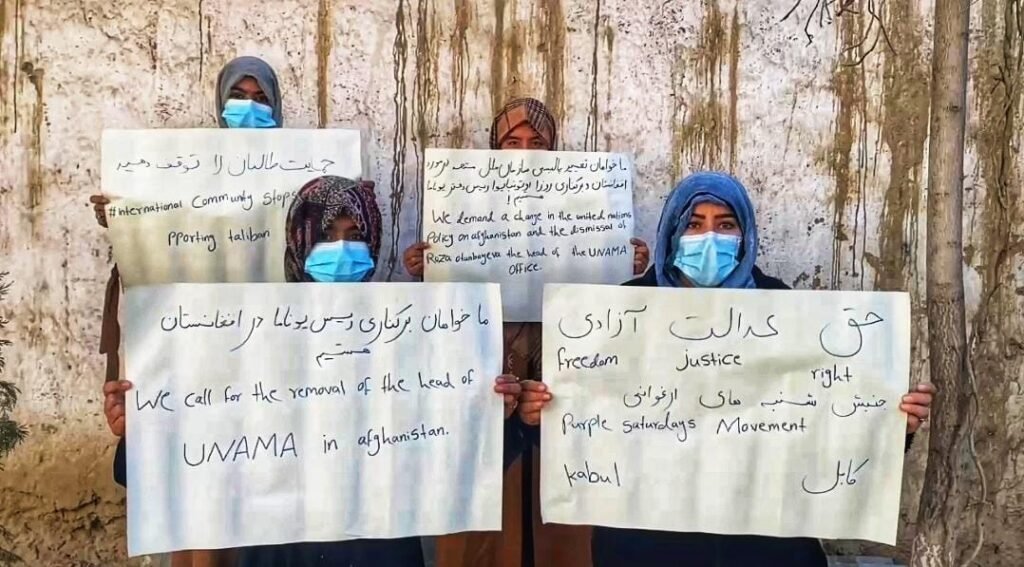 حمایت طالبان را توقف دهید
#International Community Stops
pporting taliban
ما خواهان تغییر پالیسی سازمان ملل متحد در مورد
افغانستان و برکناری روزا اوتونبایوا رییس دفتر یوناما
هستیم!
We demand a change in the united nations
Policy on afghanistan and the dismissal of
Roza otunbayeva the head of the UNAMA
OFFICE.
ما خواهان برکناری رییس یوناما در افغانستان
هستیم
We call for the removal of the head of
UNAMA in afghanistan.
حق عدالت آزادی
freedom justice right
جنبش شنبه های ارغوانی
Purple Saturdays Movement
kabul کابل